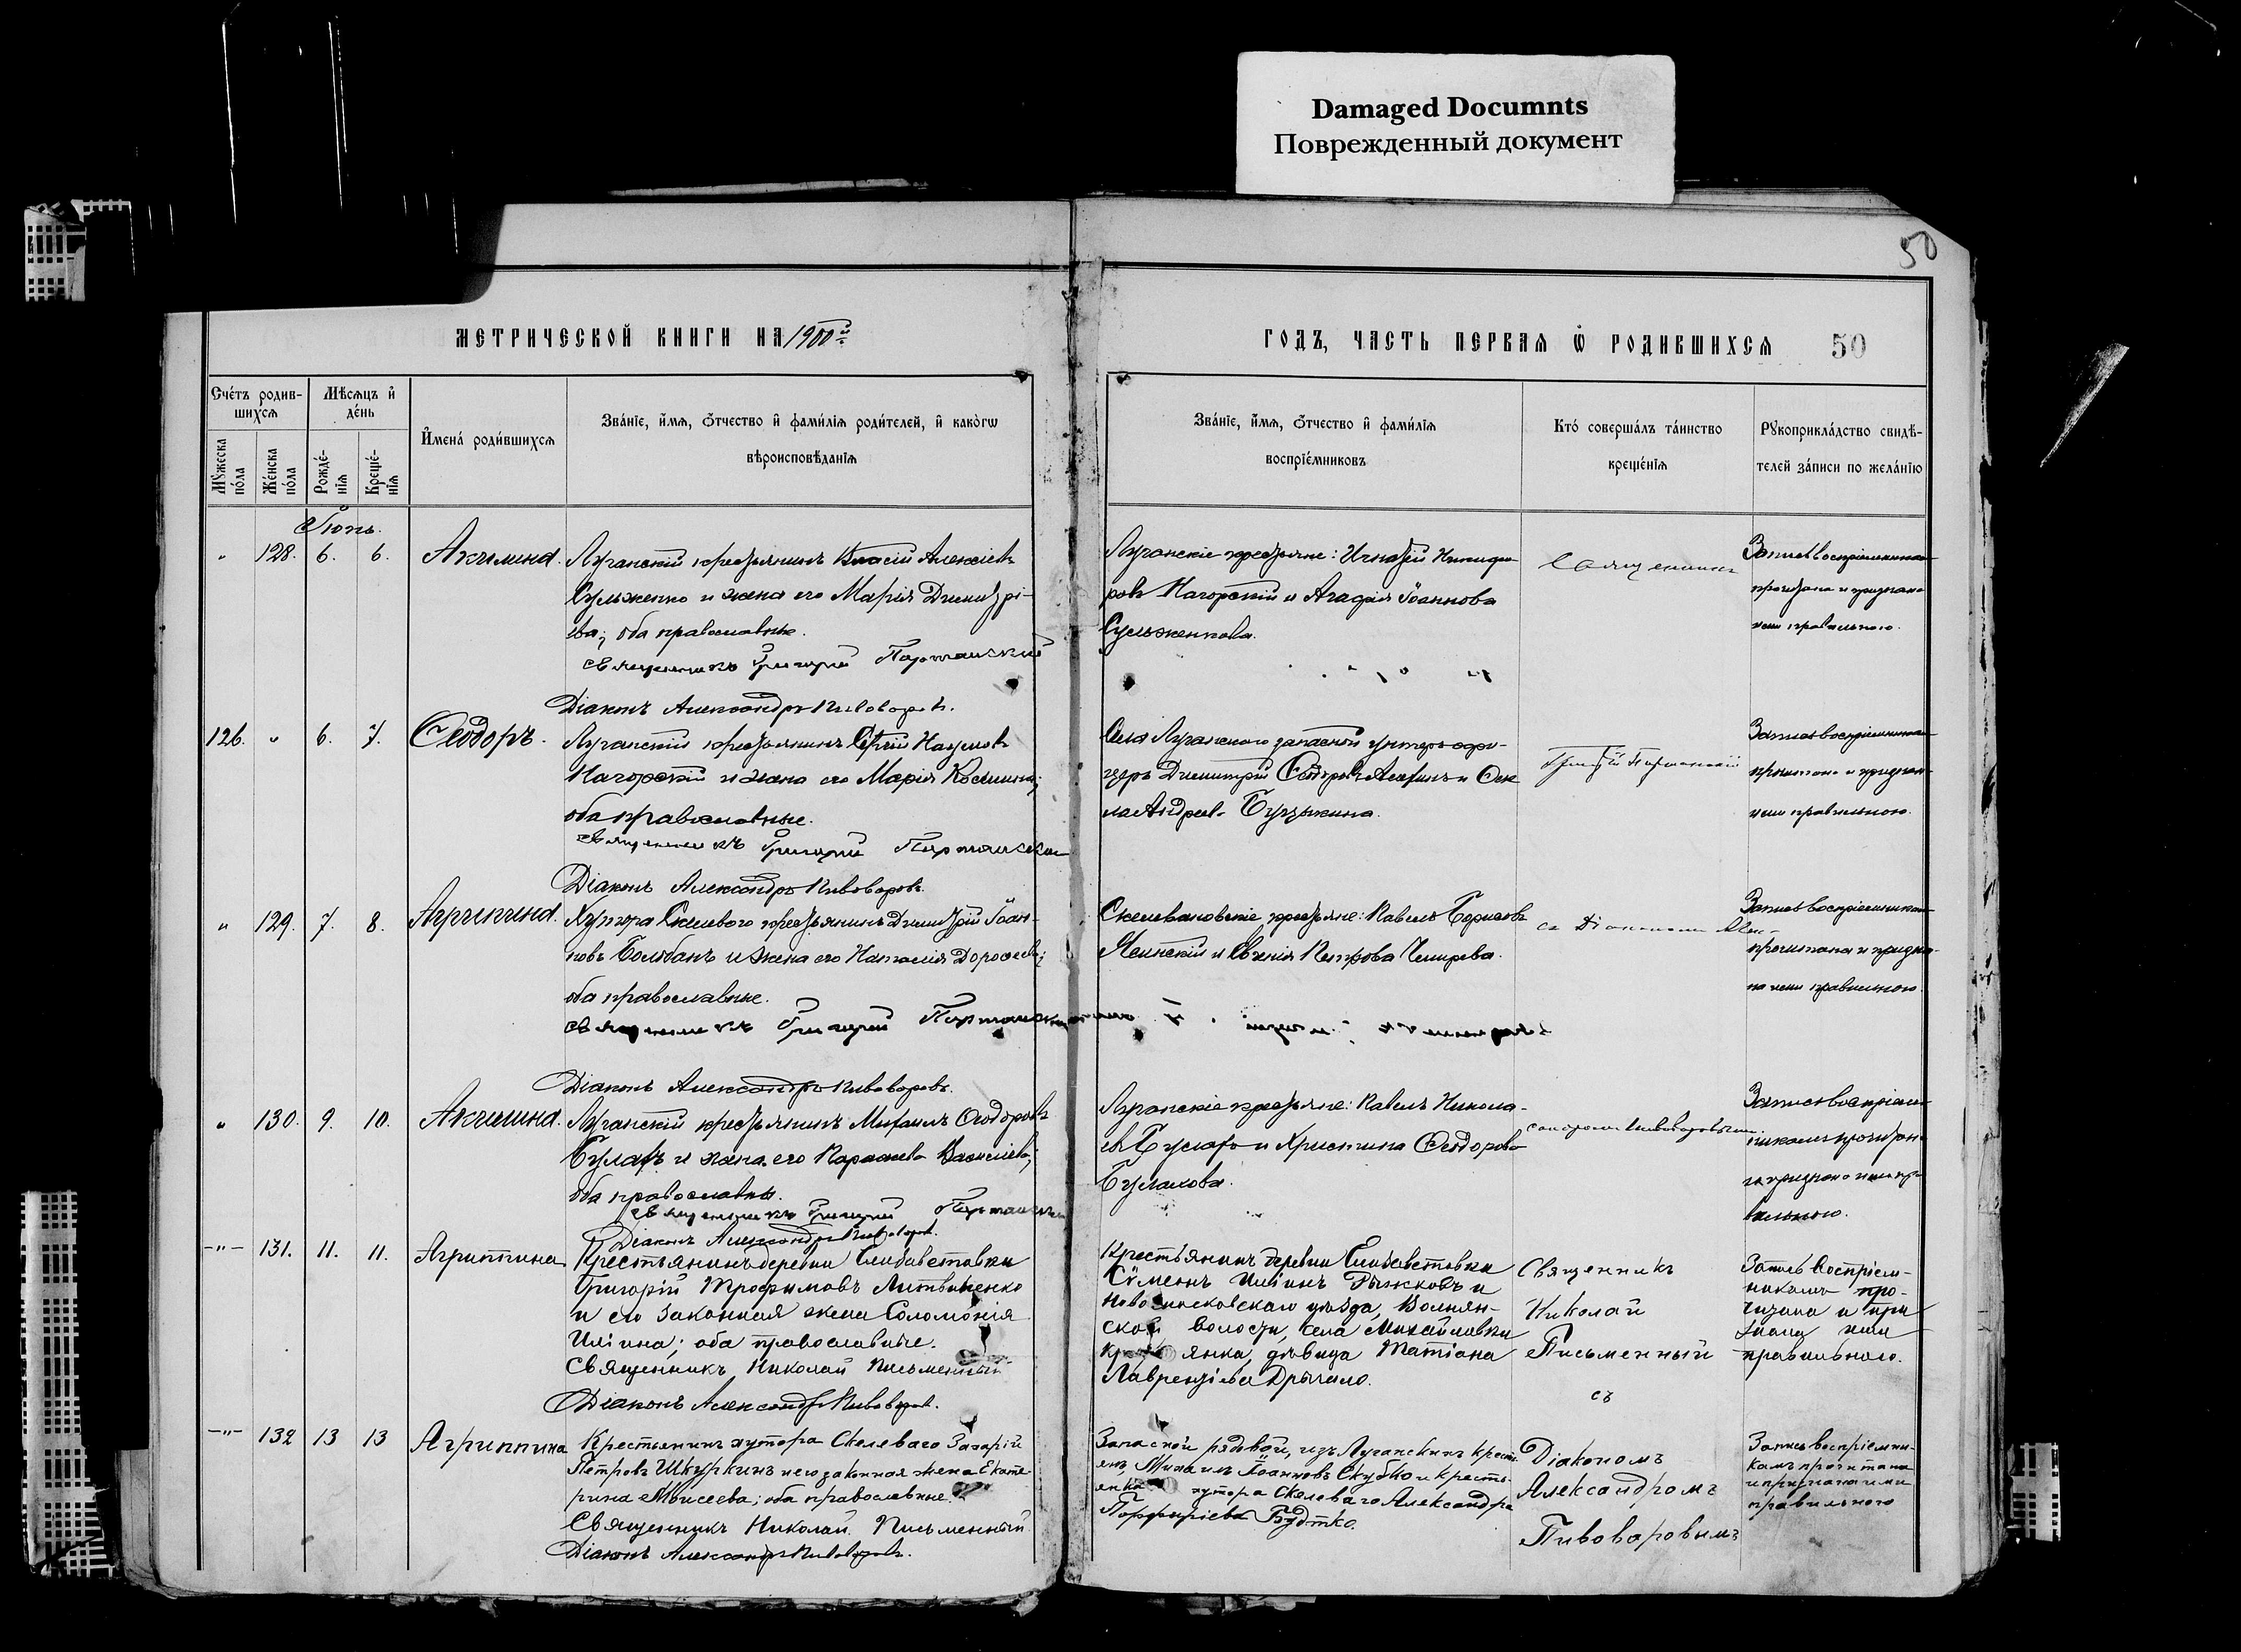 Damaged Documnts
Поврежденный документ
50
МЕТРИЧЕСКОЙ КНИГИ НА 1900й
ГОДЪ, ЧАСТЬ ПЕРВАЯ Ѡ РОДИВШИХСЯ 50
Счетъ родив-
шихся
Мѣсяцъ и
день
Мужеска
пола
Женска
пола
Рожде-
нія
Креще-
нія
Имена родившихся
Званіе, имя, отчество и фамилія родителей, и какогѡ
вѣроисповѣданія
Званіе, имя, отчество и фамилія
воспріемниковъ
Кто совершалъ таинство
крещенія
Рукоприкладство свидѣ-
телей записи по желанію
Іюнь.
" 128. 6. 6. Акилина. Луганскій крестьянинъ Власій Алексіевъ
Сульженко и жена его Марія Димитрі-
ева; оба православные.
Священникъ Григорій
Діаконъ Александръ Пивоваровъ.
Луганскіе крестьяне: Игнатій Никифо-
ровъ Нагорскій и Агафія Іоаннова
Священникъ
Запись воспріемникам
прочитана и признана
ими правильною.
126. " 6. 7. Ѳеодоръ. Луганскій крестьянинъ Сергій Наумовъ
Нагорскій и жена его Марія Космина;
оба православные.
Священникъ Григорій
Діаконъ Александръ Пивоваровъ.
Села Луганского запасной унтеръ офи-
церъ Димитрій Ѳеодоровъ и Ѳек
ла Андреев.
Григорій
Запись воспріемникам
прочитана и признан
ими правильною.
" 129. 7. 8. Агрипина. Хутора Скелевого крестьянинъ Димитрій Іоан-
новъ Болюбанъ и жена его Наталія Дорофеева;
оба православные.
Священникъ Григорій
Діаконъ Александръ Пивоваровъ.
крестьяне: Павелъ Борисовъ
и Евгенія Петрова
съ Діакономъ Алек-
Запись воспріемникам
прочитана и призна-
на ими правильною.
" 130. 9. 10. Акилина. Луганскій крестьянинъ Михаилъ Ѳеодоровъ
Булахъ и жена его Параскева Василіева;
оба православны.
Священникъ Григорій
Діаконъ Александръ Пивоваровъ.
Луганскіе крестьяне: Павелъ Никола-
евъ и Христина Ѳеодорова
Булахова.
сандромъ Пивоваровымъ.
Запись воспріем-
никамъ прочитан
и признана ими пра
вильною.
-"- 131. 11. 11. Агриппина Крестьянинъ деревни Елисаветовки
Григорій Трофимовъ Литвиненко
и его законная жена Соломонія
Иліина; оба православные.
Священникъ Николай Письменный
Діаконъ Александръ Пивоваровъ.
Крестьянинъ деревни Елисаветовки
Сѵмеонъ Иліинъ Рыжковъ и
Новомосковскаго уѣзда,
ской волости, села Михайловки
янка, дѣвица Татіана
Лаврентіева
Священникъ
Николай
Письменный
съ
Запись воспріем-
никамъ про-
читана и при
знана ими
правильною.
-"- 132 13 13 Агриппина Крестьянинъ хутора Скелеваго Захарій
Петровъ Шкуркинъ и его законная жена Екате
рина Моисеева; оба православные.
Священникъ Николай Письменный
Діаконъ Александръ Пивоваровъ.
Запасной рядовой, изъ Луганскихъ крест
янъ, Михаилъ Іоанновъ Скубко и кресть-
янка хутора Скелеваго Александра
Порфиріева
Діакономъ
Александромъ
Пивоваровымъ
Запись воспріемни-
камъ прочитана
и признана ими
правильною